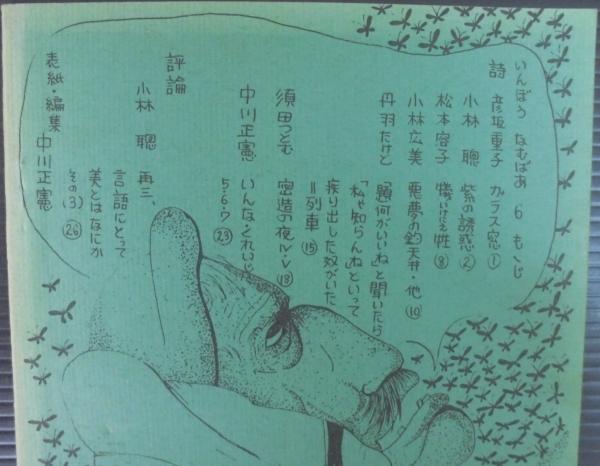 いんぼう なむばあ 6 もくじ
詩 彦坂重子 カラス窓 ①
小林 聰 紫の誘惑 ②
松本容子 犠牲 ⑧
小林広美 悪夢の釣天井・他 ⑩
丹羽たけと 「題何がいいね」と聞いたら
「私ゃ知らんね」といって
疾り出した奴がいた
＝列車 ⑮
須田つとむ 密造の夜 Ⅳ・Ⅴ ⑱
中川正憲 いんなあくれいじい
5・6・7 ㉓
評論
小林 聰 再三、
言語にとって
美とはなにか
その(3) ㉖
表紙・編集 中川正憲